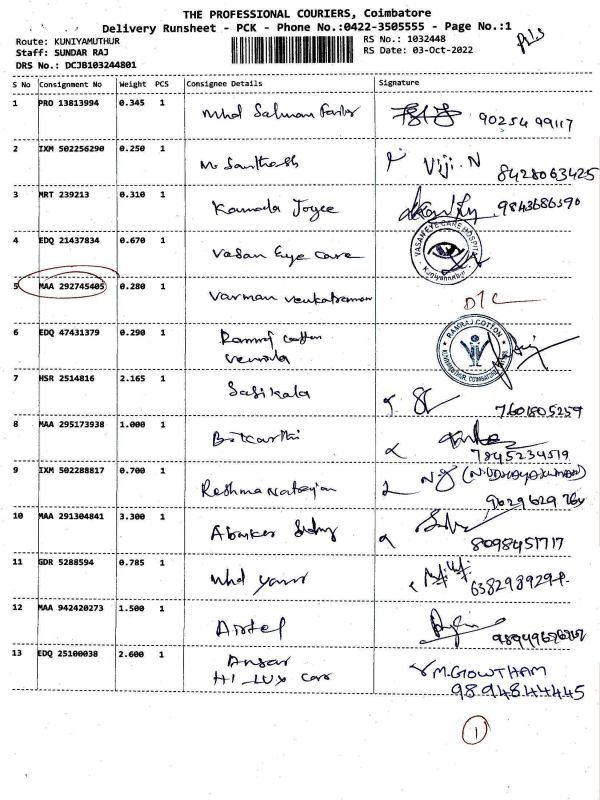 THE PROFESSIONAL COURIERS, Coimbatore
Delivery Runsheet - PCK - Phone No.:0422-3505555 - Page No.:1
Route: KUNIYAMUTHUR RS No.: 1032448
Staff: SUNDAR RAJ RS Date: 03-Oct-2022
DRS No.: DCJB103244801
S No Consignment No Weight PCS Consignee Details Signature
1 PRO 13813994 0.345 1 Mhd Salman 90254 99117
2 IXM 502256290 0.250 1 M Santhosh Viji. N 8428063425
3 MRT 239213 0.310 1 Kamada Joyce 9843686590
4 EDQ 21437834 0.670 1 Vasan Eye Care VASAN EYE CARE HOSPITAL Kuniyamuthur
5 MAA 292745405 0.280 1 Varman Venkatraman D/C
6 EDQ 47431379 0.290 1 Ramraj cotton RAMRAJ COTTON
7 HSR 2514816 2.165 1 Sasikala 7601805259
8 MAA 295173938 1.000 1 7845234519
9 IXM 502288817 0.700 1 Reshma Natarajan 9629629764
10 MAA 291304841 3.300 1 8098451717
11 GDR 5288594 0.785 1 Mhd
12 MAA 942420273 1.500 1 Airtel
13 EDQ 25100038 2.600 1 Ansar M. GOWTHAM
HI LUX Car 9894844445
1